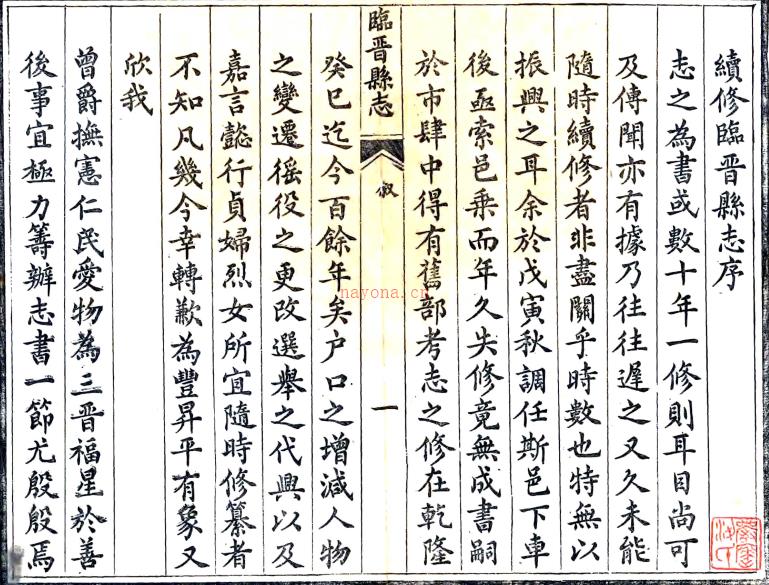 續修臨晉縣志序
志之為書或數十年一修則耳目尚可
及傳聞亦有據乃往往遲之又久未能
隨時續修者非盡關乎時數也特無以
振興之耳余於戊寅秋調任斯邑下車
後亟索邑乘而年久失修竟無成書嗣
於市肆中得有舊部考志之修在乾隆
臨晉縣志
叙
一
癸巳迄今百餘年矣戶口之增減人物
之變遷徭役之更改選舉之代興以及
嘉言懿行貞婦烈女所宜隨時修纂者
不知凡幾今幸轉歉為豐昇平有象又
欣我
曾爵撫憲仁民愛物為三晉福星於善
後事宜極力籌辦志書一節尤殷殷焉
nayona.cn